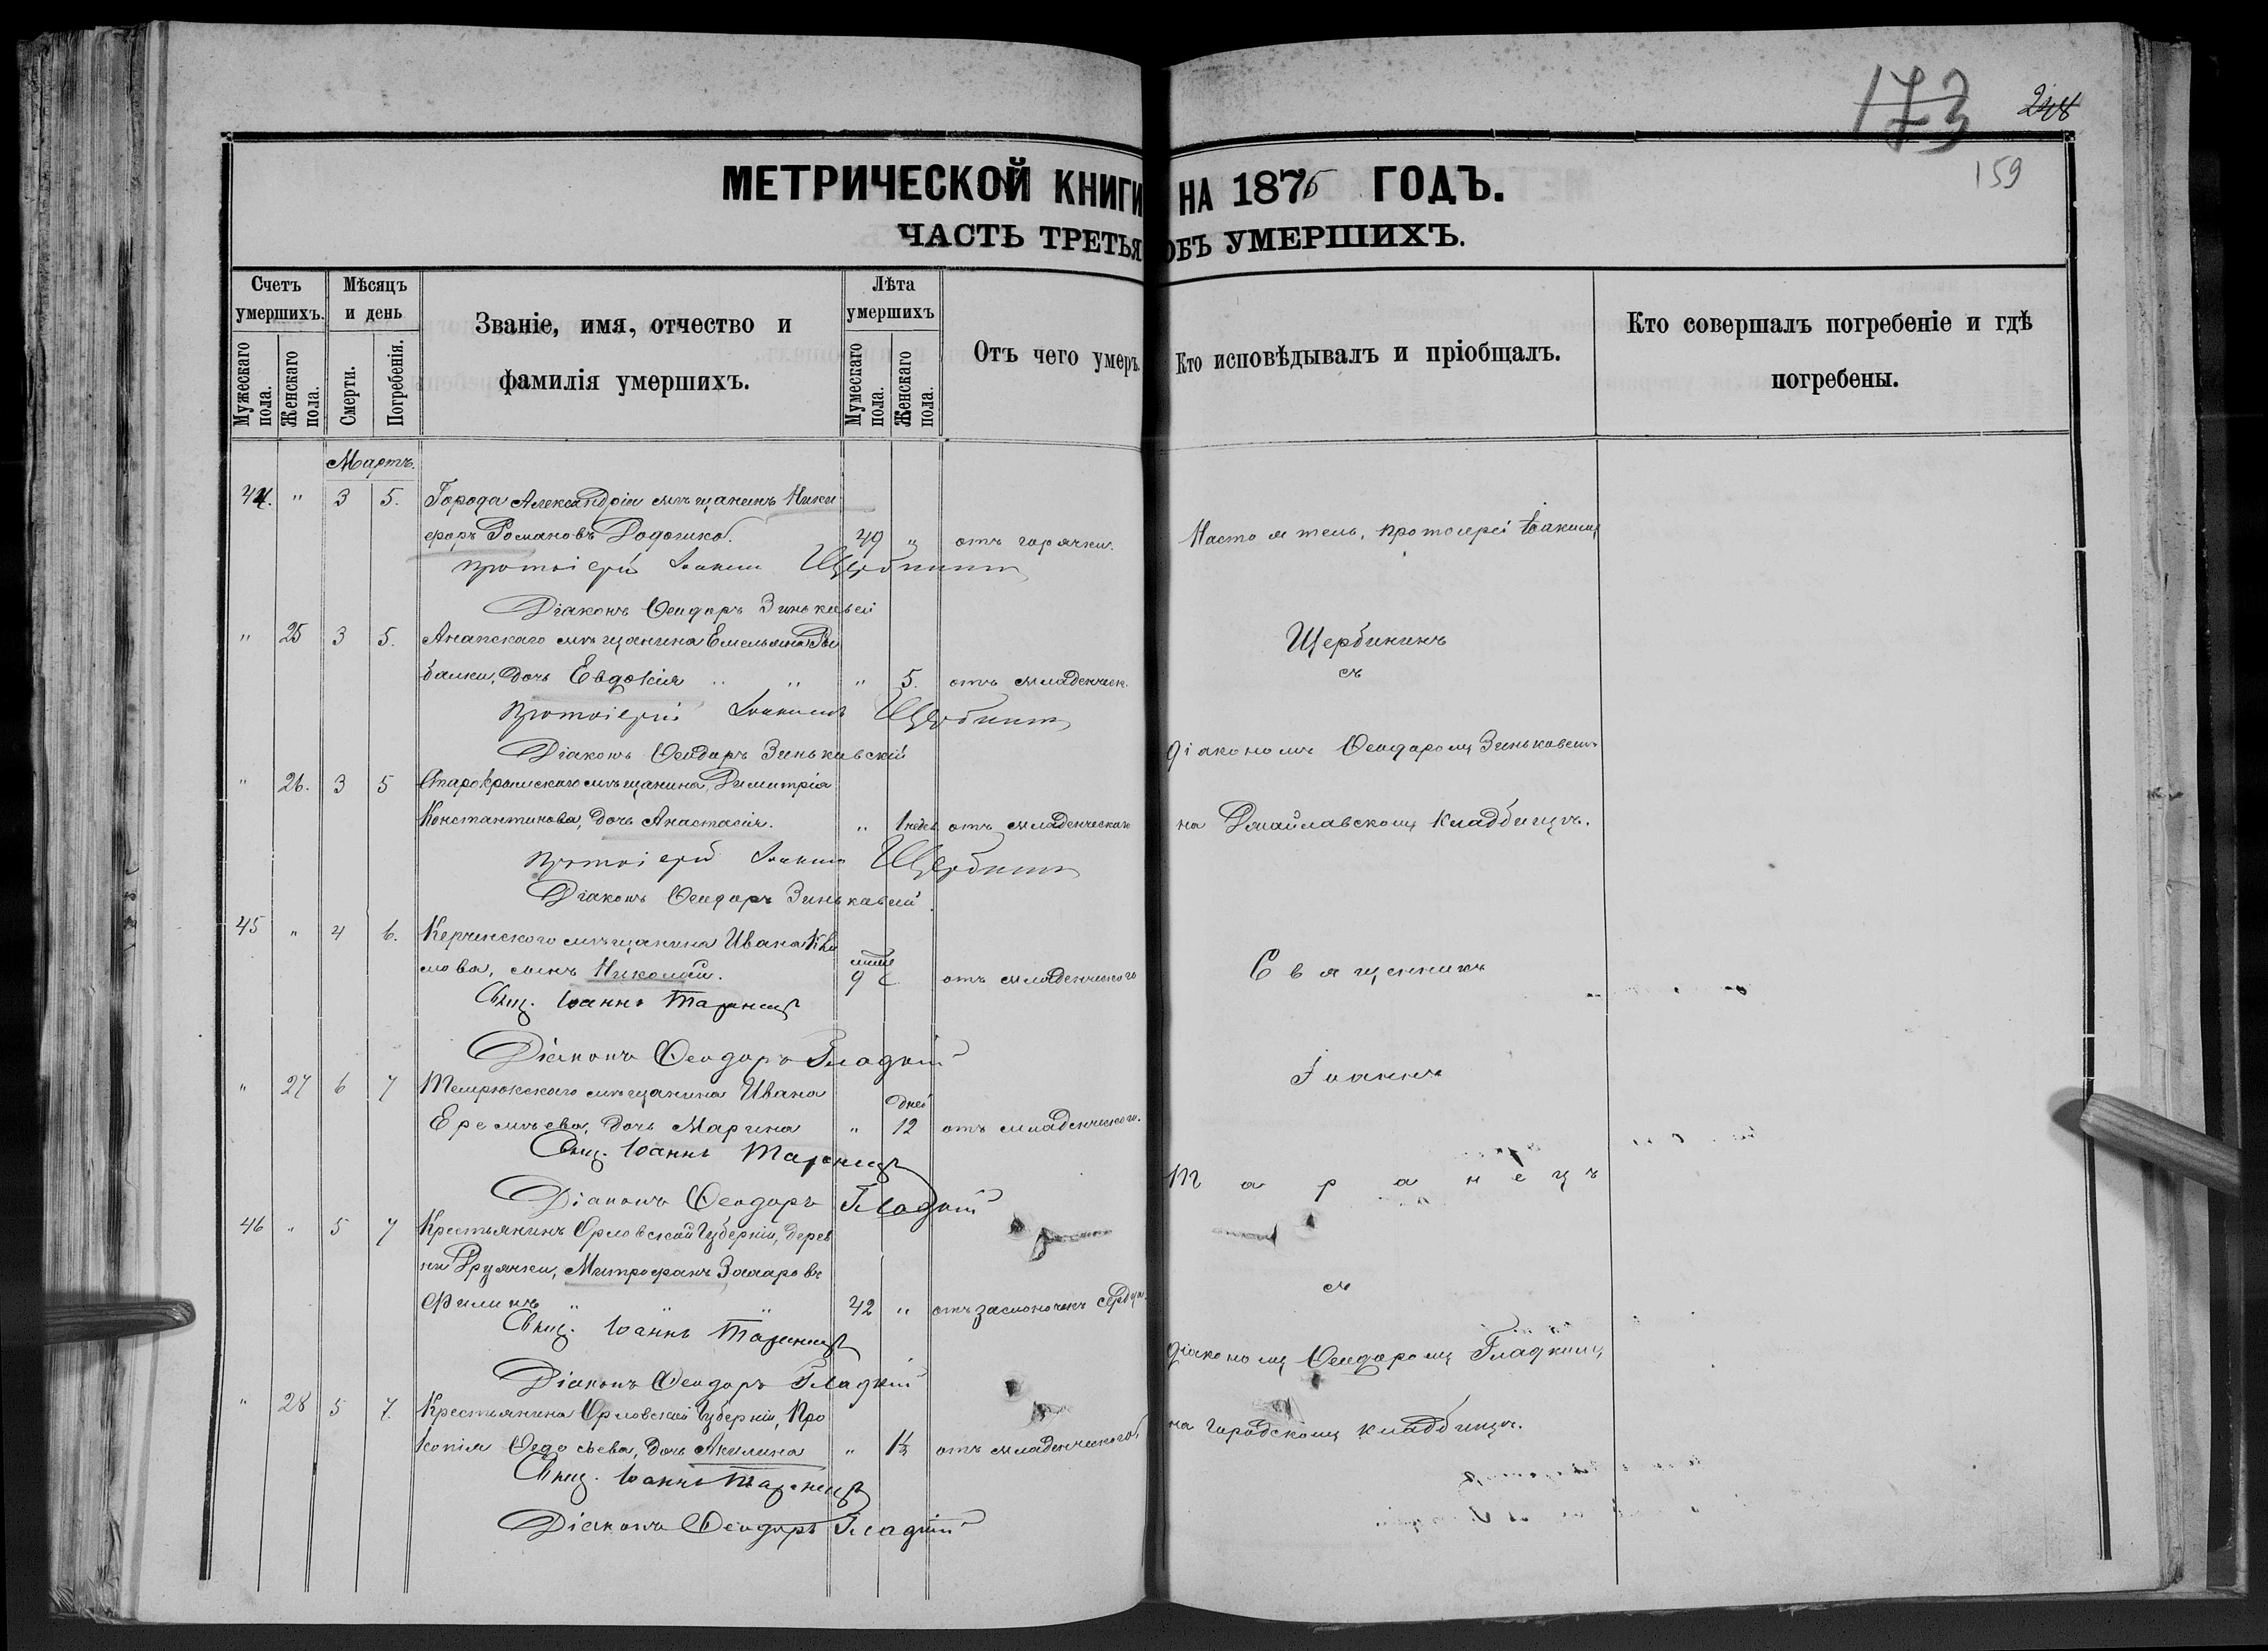 173
248
159
МЕТРИЧЕСКОЙ КНИГИ НА 1876 ГОДЪ.
ЧАСТЬ ТРЕТЬЯ ОБЪ УМЕРШИХЪ.
Счетъ умершихъ.
Мужескаго пола.
Женскаго пола.
Мѣсяцъ и день
Смерти.
Погребенія.
Званіе, имя, отчество и
фамилія умершихъ.
Лѣта умершихъ
Мумескаго пола.
Женскаго пола.
Отъ чего умеръ.
Кто исповѣдывалъ и пріобщалъ.
Кто совершалъ погребеніе и гдѣ
погребены.
Мартъ.
44. " 3 5. Города Александріи мѣщанинъ Ники
форъ Романовъ 49 " отъ горячки. Настоятель, протоіерей Іоакимъ
протоіерей Іоакимъ Щербининъ
Діаконъ Ѳеодоръ Зиньковскій
" 25 3 5. Анапскаго мѣщанина Емельяна Ры
балки, дочь Евдокія " " " 5. отъ младенческ. Щербининъ
съ
протоіерей Іоакимъ Щербининъ
Діаконъ Ѳеодоръ Зиньковскій діакономъ Ѳеодоромъ Зиньковскимъ
" 26. 3 5 Старокрымскаго мѣщанина, Димитрія
Константинова, дочь Анастасія. " 1 недѣл. отъ младенческаго на кладбищѣ.
протоіерей Іоакимъ Щербининъ
Діаконъ Ѳеодоръ Зиньковскій
45 " 4 6. Керчинскаго мѣщанина Ивана Кли
мова, сынъ Николай. 9 отъ младенческаго Священникъ
Свящ. Іоаннъ Таранецъ
Діаконъ Ѳеодоръ Гладкій
" 27 6 7 Темрюкскаго мѣщанина Ивана Іоаннъ
Еремѣева, дочь Марина " 12 дней отъ младенческаго.
Свящ. Іоаннъ Таранецъ
Діаконъ Ѳеодоръ Гладкій Таранецъ
46 " 5 7 Крестьянинъ Орловской Губерніи, дерев
ни Митрофанъ Захаровъ съ
Филинъ " " " 42 " отъ заслоночекъ сердца.
Свящ. Іоаннъ Таранецъ
Діаконъ Ѳеодоръ Гладкій діакономъ Ѳеодоромъ Гладкимъ
" 28 5 7. Крестьянина Орловской Губерніи, Про
копія Ѳедосѣева, дочь Акилина " 1½ отъ младенческаго на городскомъ кладбищѣ.
Свящ. Іоаннъ Таранецъ
Діаконъ Ѳеодоръ Гладкій